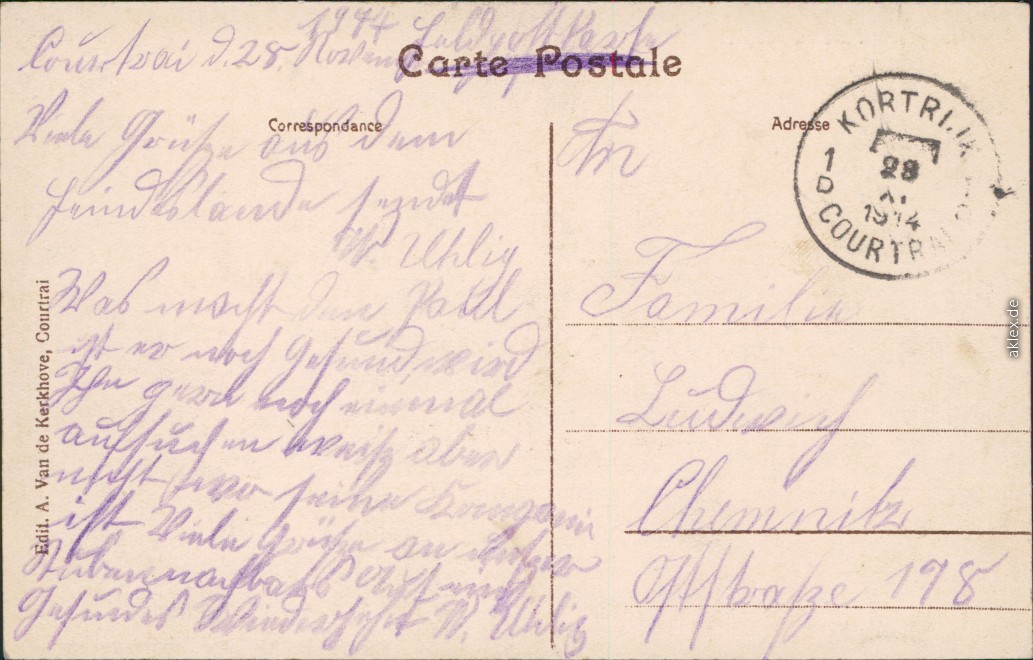 1914 Feldpostkarte
Courtrai d. 28. Novem
Carte Postale
Correspondance
Adresse
Viele Grüße aus dem
Feindeslande sendet
W. Uhlig
Was macht den Paul
ist er noch Gesund, wird
Ihn gern noch einmal
aufsuchen weiß aber
nicht wo seine Kompanie
ist Viele Grüße an
Stubennachbars Auf ein
Gesundes Wiedersehn W. Uhlig
An
Familie
Ludwich
Chemnitz
Oststraße 198
KORTRIJK
1 D
28
XI
1914
COURTRAI
Edit. A. Van de Kerkhove, Courtrai
aklex.de